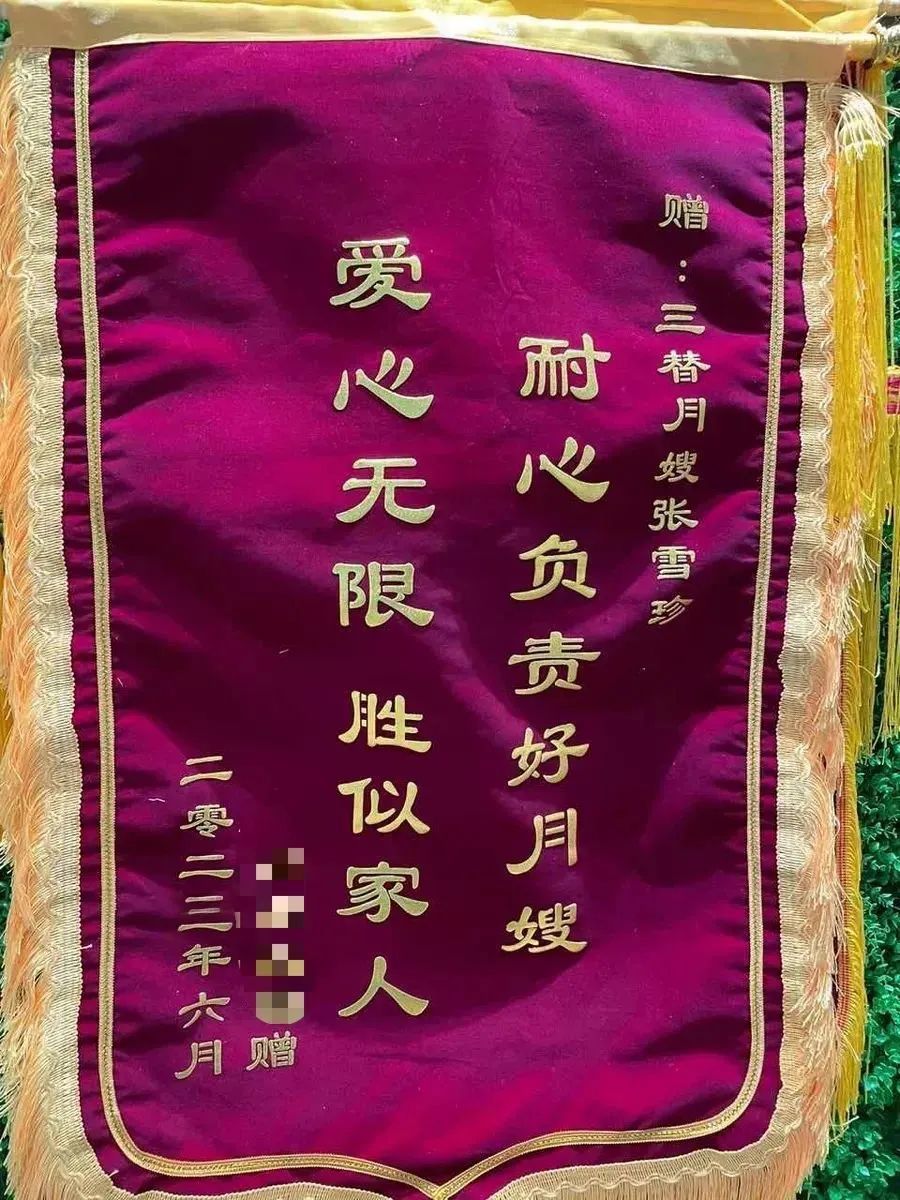 赠：三替月嫂张雪珍
耐心负责好月嫂
爱心无限 胜似家人
赠
二零二三年六月